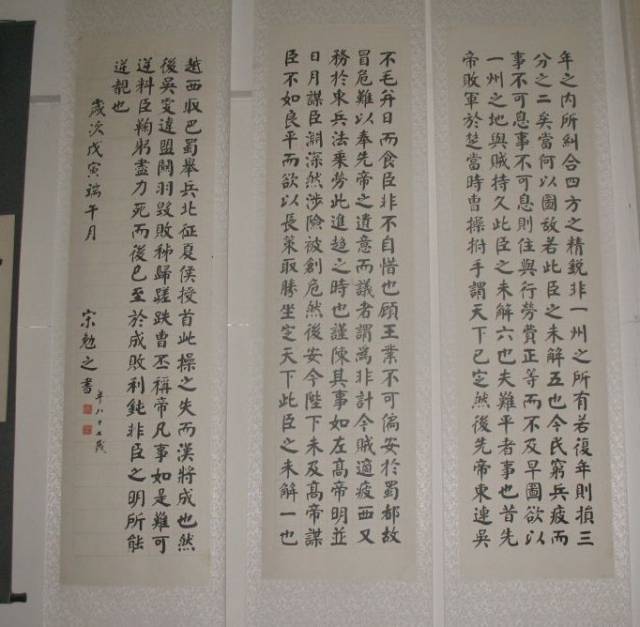 年之内所糾合四方之精銳非一州之所有若復年則損三
分之二矣當何以圖故若此臣之未解五也今民窮兵疲而
事不可息事不可息則住與行勞費正等而不及早圖欲以
一州之地與賊持久此臣之未解六也夫難平者事也昔先
帝敗軍於楚當時曹操拊手謂天下已定然後先帝東連吳
不毛并日而食臣非不自惜也顧王業不可偏安於蜀都故
冒危難以奉先帝之遺意而議者謂為非計今賊適疲西又
務於東兵法乘勞此進趨之時也謹陳其事如左高帝明並
日月謀臣淵深然涉險被創危然後安今陛下未及高帝謀
臣不如良平而欲以長策取勝坐定天下此臣之未解一也
越西取巴蜀舉兵北征夏侯授首此操之失而漢將成也然
後吳更違盟關羽毀敗秭歸蹉跌曹丕稱帝凡事如是難可
逆料臣鞠躬盡力死而後已至於成敗利鈍非臣之明所能
逆覩也
歲次戊寅端午月
宗勉之書
年八十歲